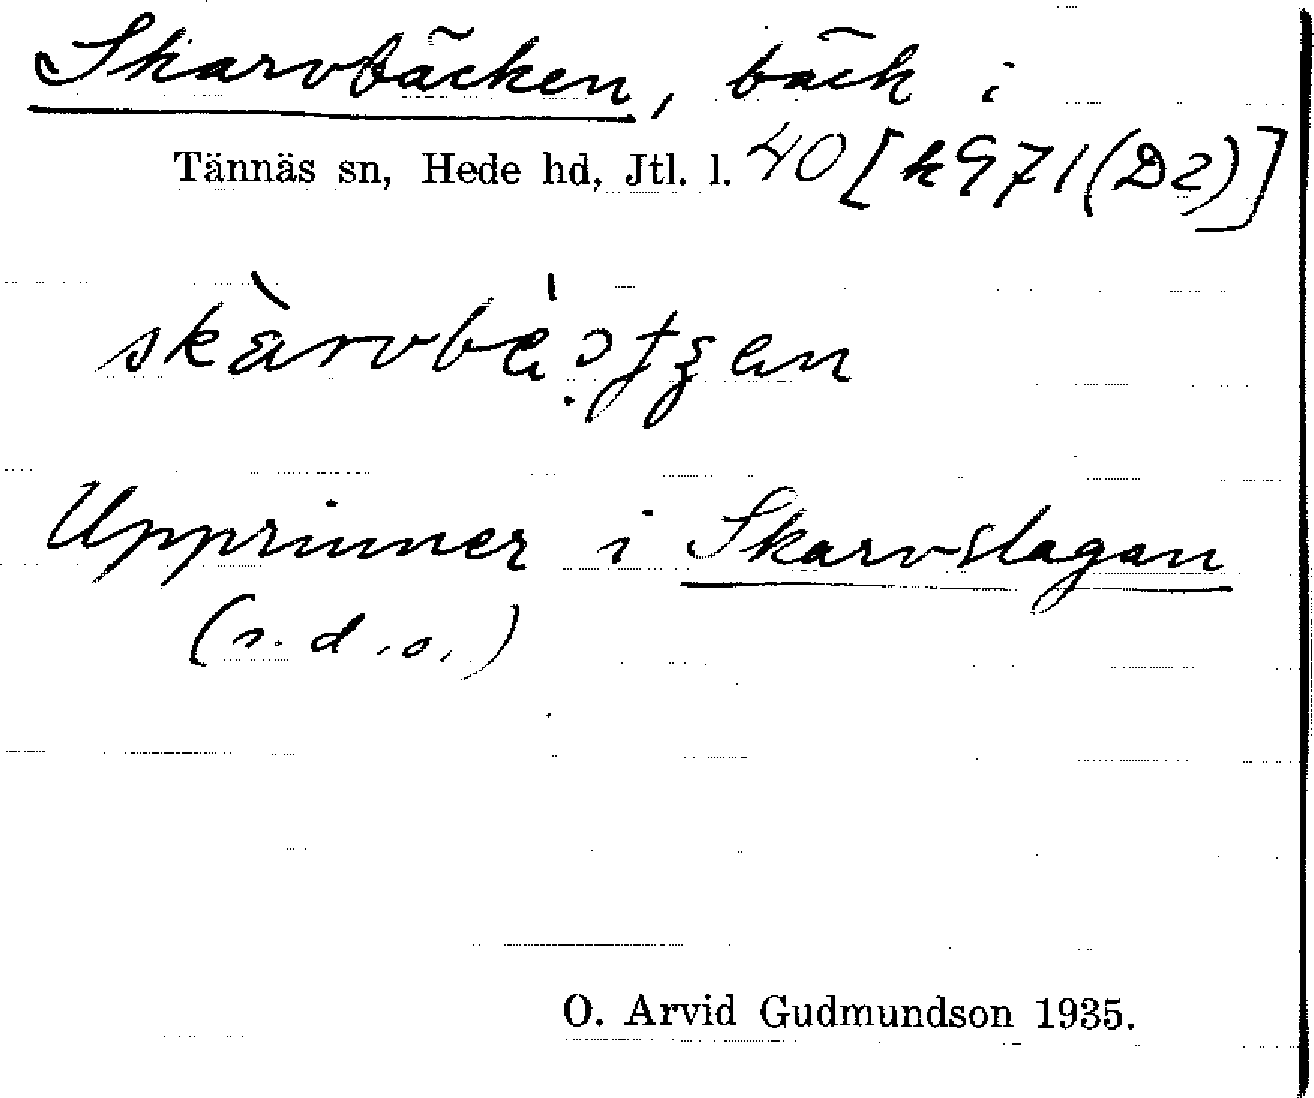 Skarvbäcken, bäck i
Tännäs sn, Hede hd, Jtl. l. 40 [k971(D2)]
Upprinner i Skarvslagan
(s. d. o.)
O. Arvid Gudmundson 1935.